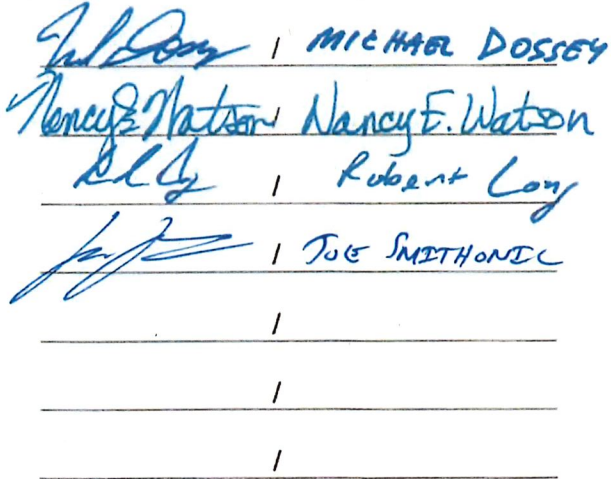 / MICHAEL DOSSEY
Nancy E. Watson / Nancy E. Watson
/ Robert Long
/ JOE SMITHONIC
/
/
/